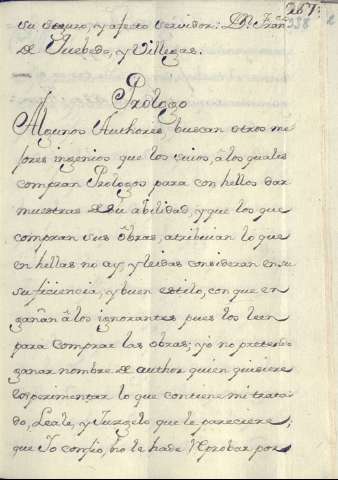 267.
238
su seguro, y afecto servidor: Dn. Fran.
de Quebedo, y Villegas.
Prologo
Algunos Authores, buscan otros me
jores ingenios que los suios, â los quales
compran Prologos para con hellos dar
muestras de su abilidad, y que los que
compran sus ôbras, atribuian lo que
en hellas no ay, y leidas consideran en su
suficiencia, y buen estilo, con que en
gañan â los ignorantes pues los leen
para comprar las obras; yo no preten
ganar nombre de author quien quisiere
esperimentar lo que contiene mi trata
do, Leale, y Juzgelo que le pareciere;
que Io confio, no le hade reprobar por